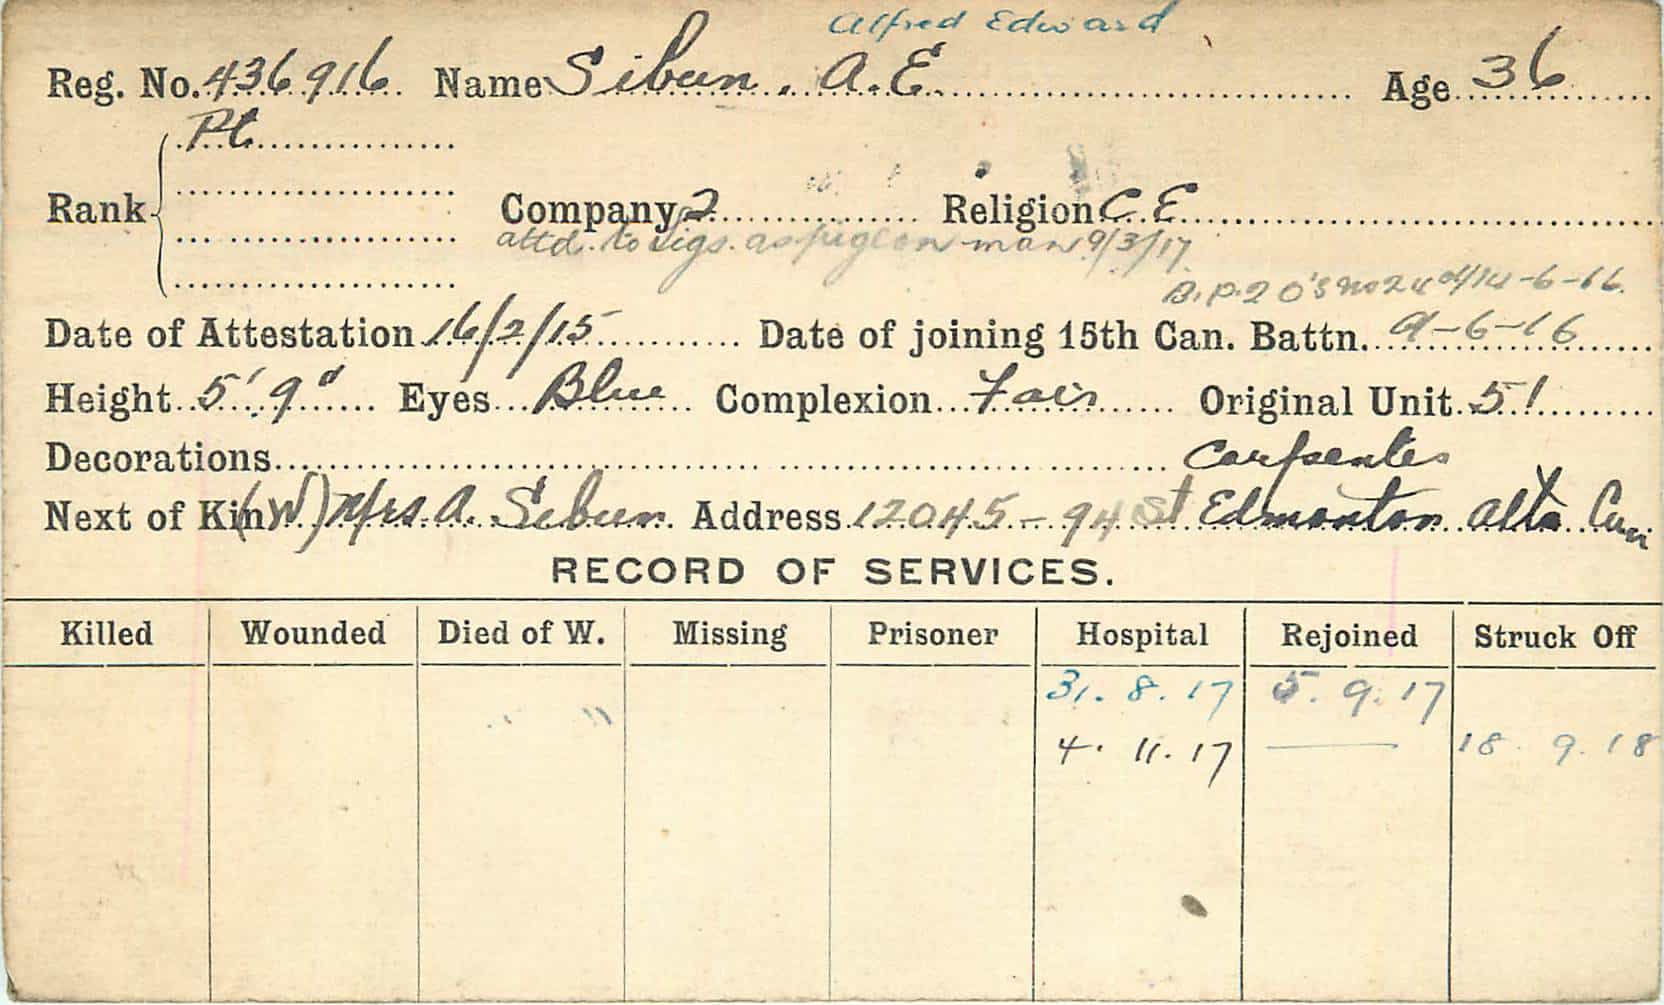 Alfred Edward
Reg. No. 436916 Name Sibun. A.E. Age 36
Pte
Rank Company 2 Religion C.E.
attd. to Sigs. as pigeon man 9/3/17
B.P.2 O's No 24 d/14-6-16.
Date of Attestation 16/2/15 Date of joining 15th Can. Battn. 9-6-16
Height 5' 9" Eyes Blue Complexion Fair Original Unit 51
Decorations Carpenter
Next of Kin (W) Mrs. A. Sibun Address 12045-94 St Edmonton Alta Can
RECORD OF SERVICES.
Killed Wounded Died of W. Missing Prisoner Hospital Rejoined Struck Off
31. 8. 17 5. 9. 17
4. 11. 17 — 18 9. 18